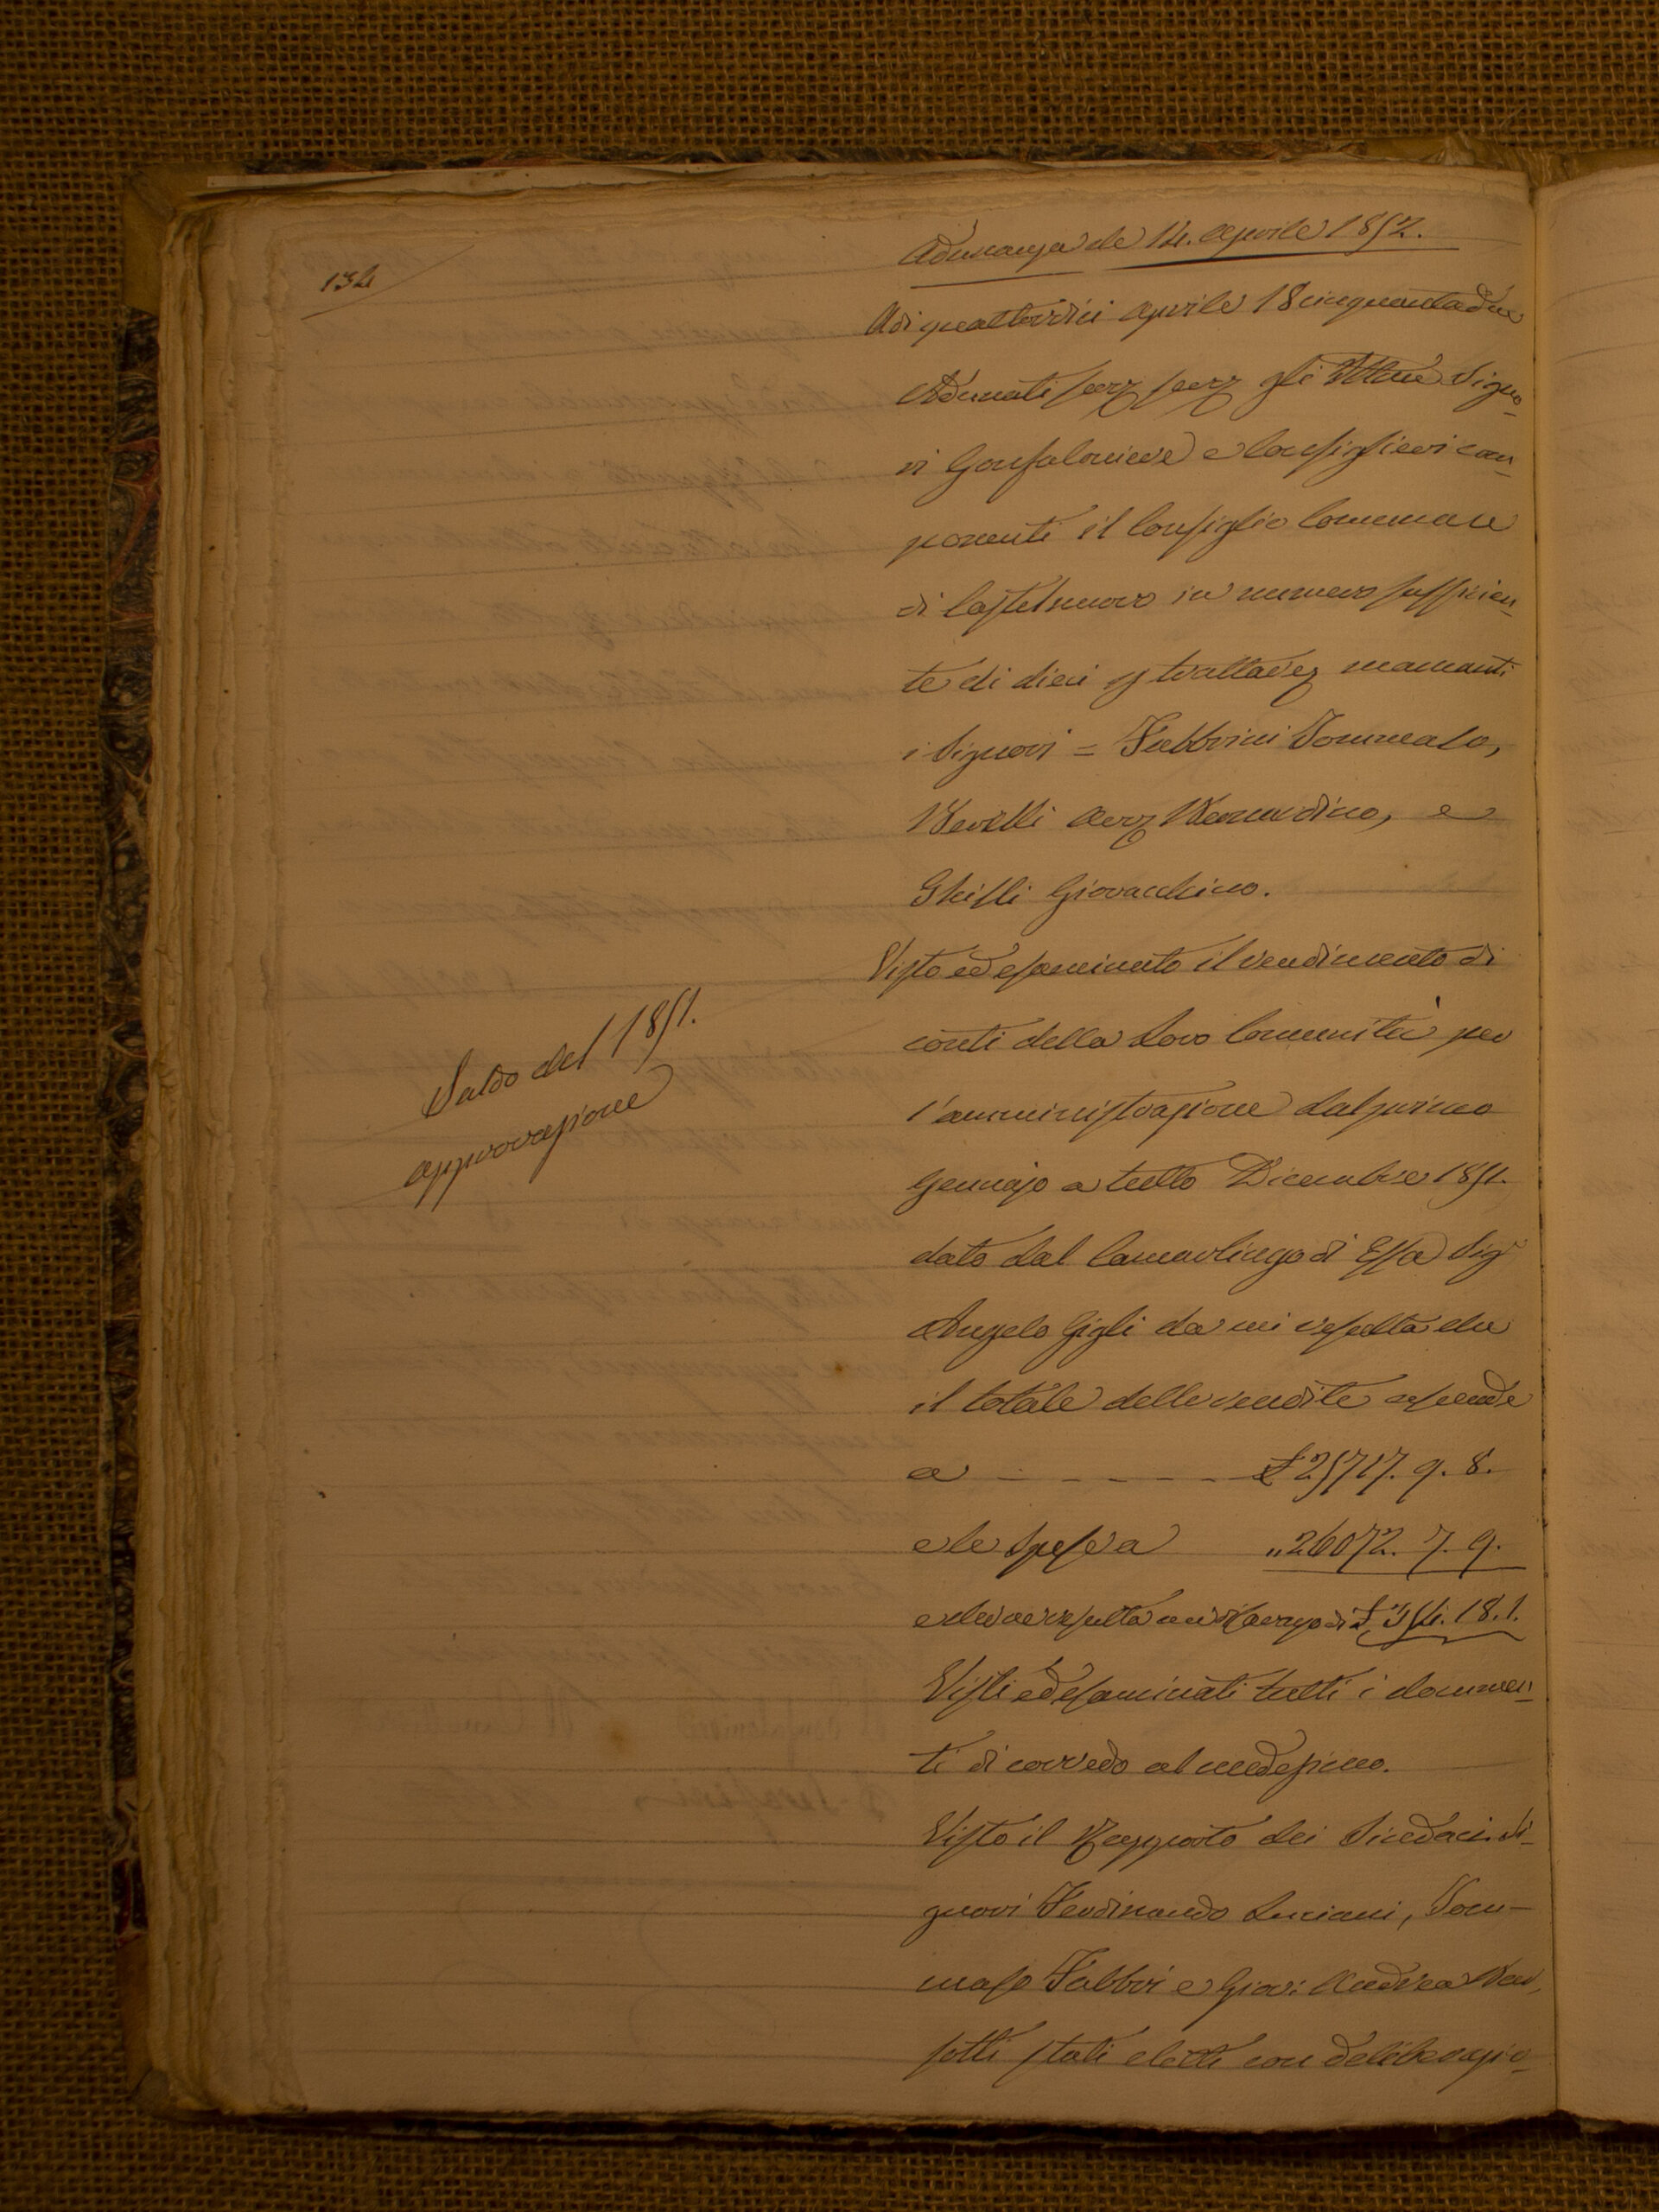 134
Adunanza de 14. Aprile 1852.
Adi quattordici Aprile 18cinquantadue
Adunati serz serz gli Illmi Signo-
ri Gonfaloniere e Consiglieri com-
ponenti il Consiglio Comunale
di Castelnuovo in numero sufficien-
te di dieci p trattarez mancanti
i Signori = Fabbrini Tommaso,
Berelli Bernardino, e
Ghilli Giovacchino.
Visto ed esaminato il rendimento di
conti della Loro Comunità per
l'amministrazione dal primo
Gennajo a tutto Dicembre 1851.
dato dal Camarlingo di Essa Sigr
Angelo Gigli da cui resulta che
il totale delle rendite ascende
a - - - - - £ 25717. 9. 8.
e le Spese a „ 26072. 7. 9.
e che resulta un disavanzo di £ 354. 18. 1.
Saldo del 1851.
approvazione
Visti ed esaminati tutti i documen-
ti di corredo al medesimo.
Visto il Rapporto dei Sindaci Si-
gnori Ferdinando Luciani, Tom-
maso Fabbri e Giovi Andrea
stati eletti con deliberazio-